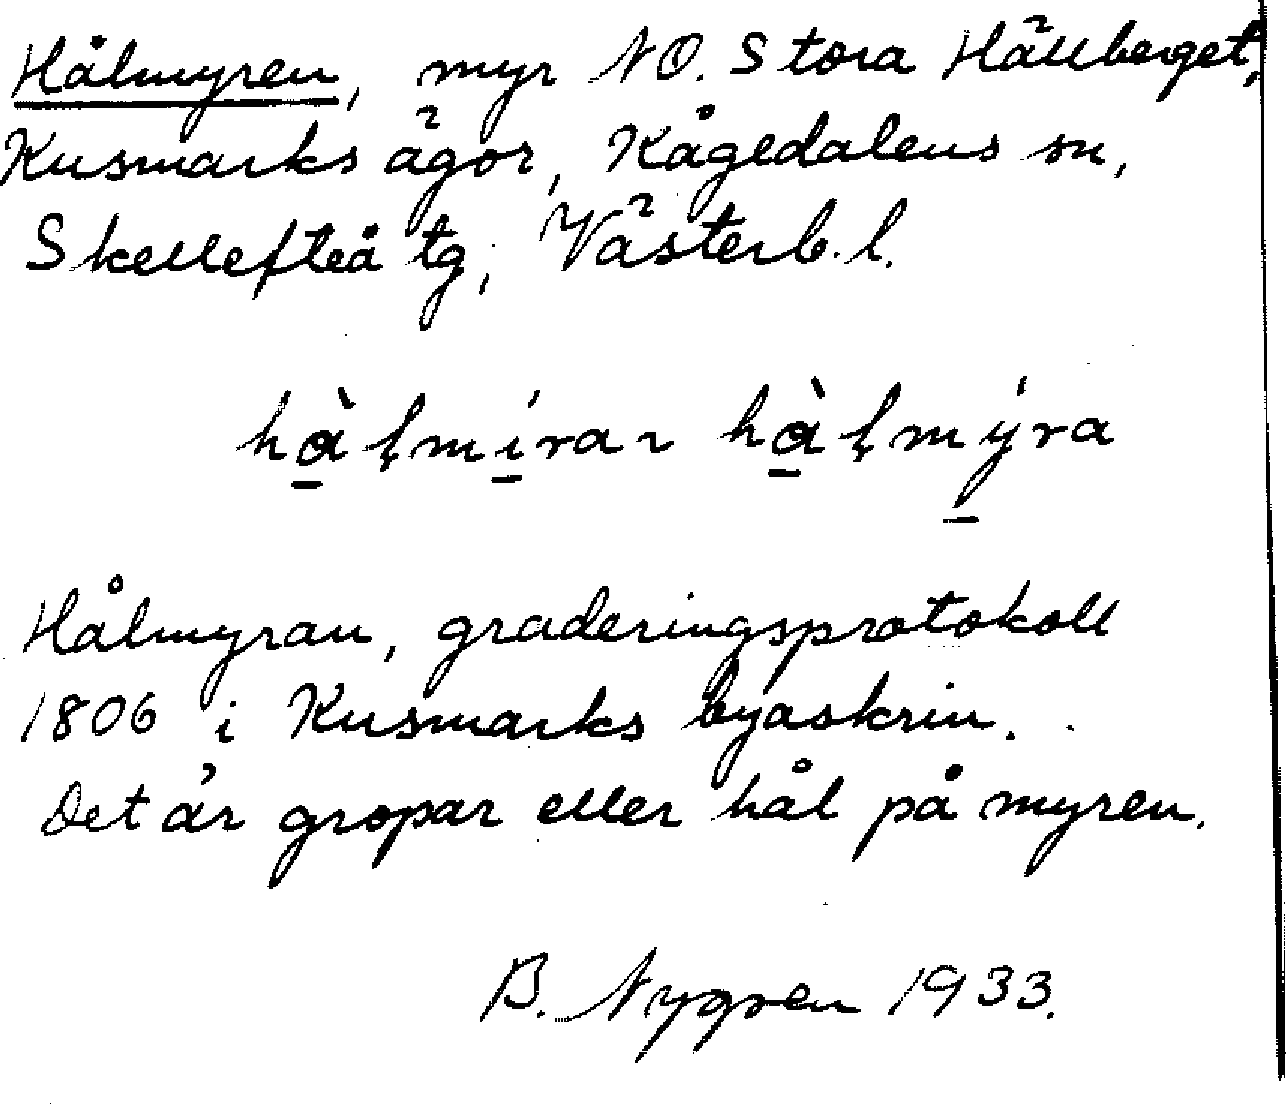 Hålmyren, myr NO. Stora Hällberget,
Kusmarks ägor, Kågedalens sn,
Skellefteå tg, Västerb. l.
hàl̥míra ~ hàl̥mýra
Hålmyran, graderingsprotokoll
1806 i Kusmarks byaskrin.
Det är gropar eller hål på myren.
B. Nygren 1933.